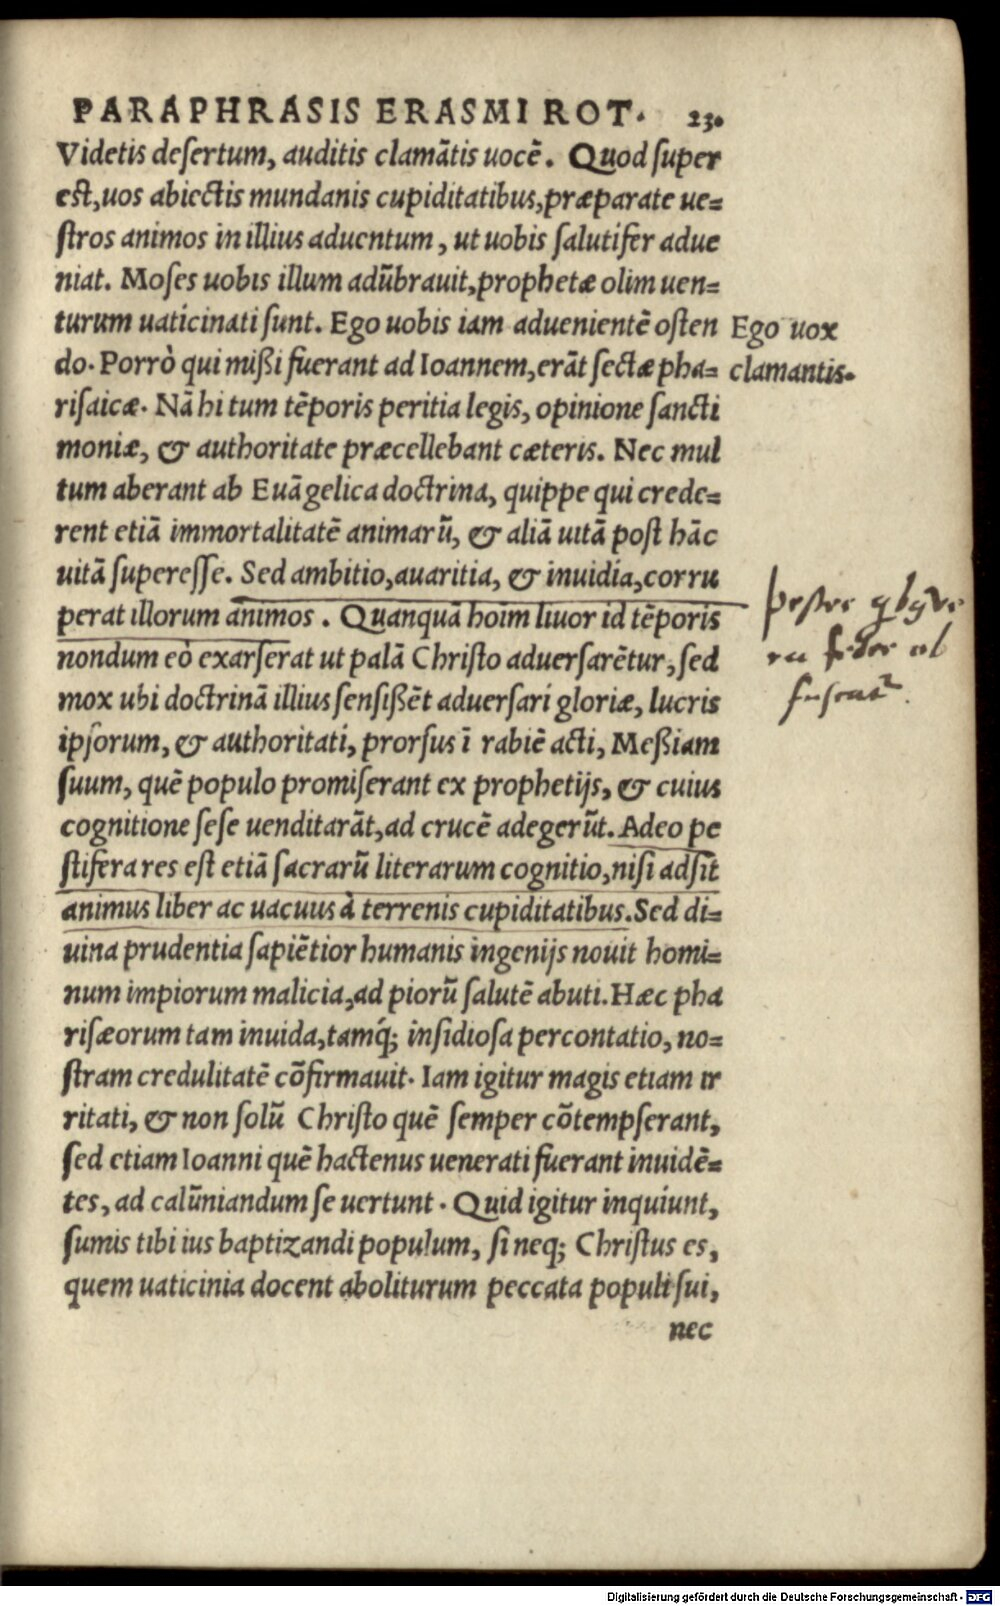 PARAPHRASIS ERASMI ROT. 23.
Videtis desertum, auditis clamãtis uocẽ. Quod super
est, uos abiectis mundanis cupiditatibus, præparate ue=
stros animos in illius aduentum, ut uobis salutifer adue
niat. Moses uobis illum adũbrauit, prophetæ olim uen=
turum uaticinati sunt. Ego uobis iam aduenientẽ osten
do. Porrò qui mißi fuerant ad Ioannem, erãt sectæ pha=
risaicæ. Nã hi tum tẽporis peritia legis, opinione sancti
moniæ, & authoritate præcellebant cæteris. Nec mul
tum aberant ab Euãgelica doctrina, quippe qui crede=
rent etiã immortalitatẽ animarũ, & aliã uitã post hãc
uitã superesse. Sed ambitio, auaritia, & inuidia, corru
perat illorum animos. Quanquã hoim liuor id tẽporis
nondum eò exarserat ut palã Christo aduersarẽtur, sed
mox ubi doctrinã illius sensißẽt aduersari gloriæ, lucris
ipsorum, & authoritati, prorsus ĩ rabiẽ acti, Meßiam
suum, quẽ populo promiserant ex prophetijs, & cuius
cognitione sese uenditarãt, ad crucẽ adegerũt. Adeo pe
stifera res est etiã sacrarũ literarum cognitio, nisi adsit
animus liber ac uacuus à terrenis cupiditatibus. Sed di=
uina prudentia sapiẽtior humanis ingenijs nouit homi=
num impiorum malicia, ad piorũ salutẽ abuti. Hæc pha
risæorum tam inuida, tamq́; insidiosa percontatio, no=
stram credulitatẽ cõfirmauit. Iam igitur magis etiam ir
ritati, & non solũ Christo quẽ semper cõtempserant,
sed etiam Ioanni quẽ hactenus uenerati fuerant inuidẽ=
tes, ad calũniandum se uertunt. Quid igitur inquiunt,
sumis tibi ius baptizandi populum, si neq; Christus es,
quem uaticinia docent aboliturum peccata populi sui,
nec
Ego uox
clamantis.